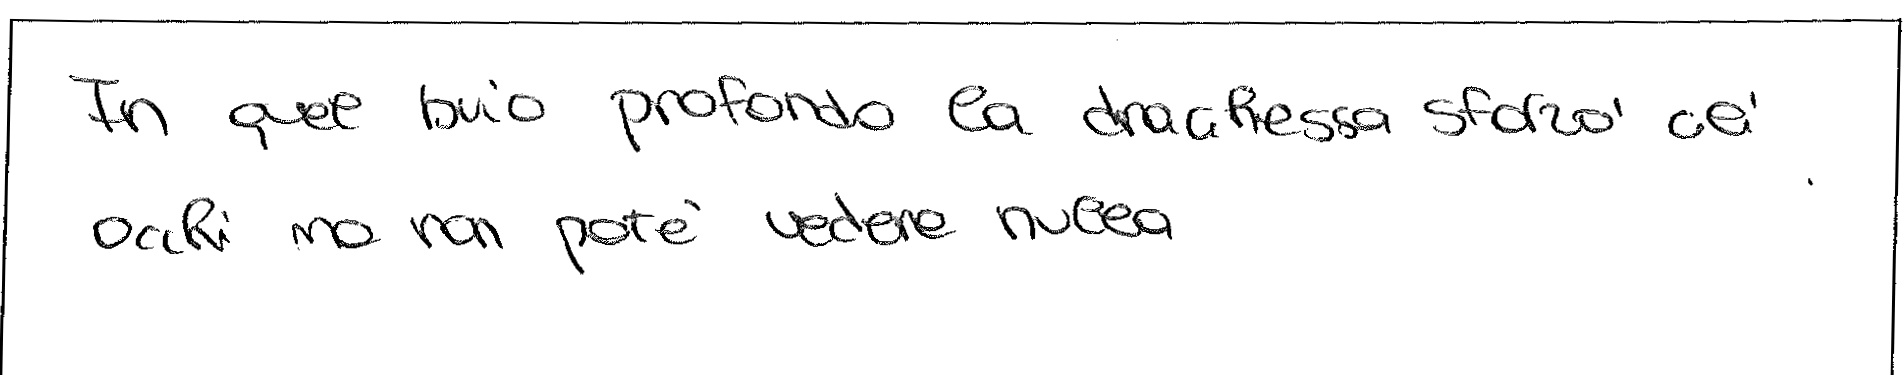 In quel buio profondo la drachessa sforzo' cli
occhi ma non pote' vedere nulla